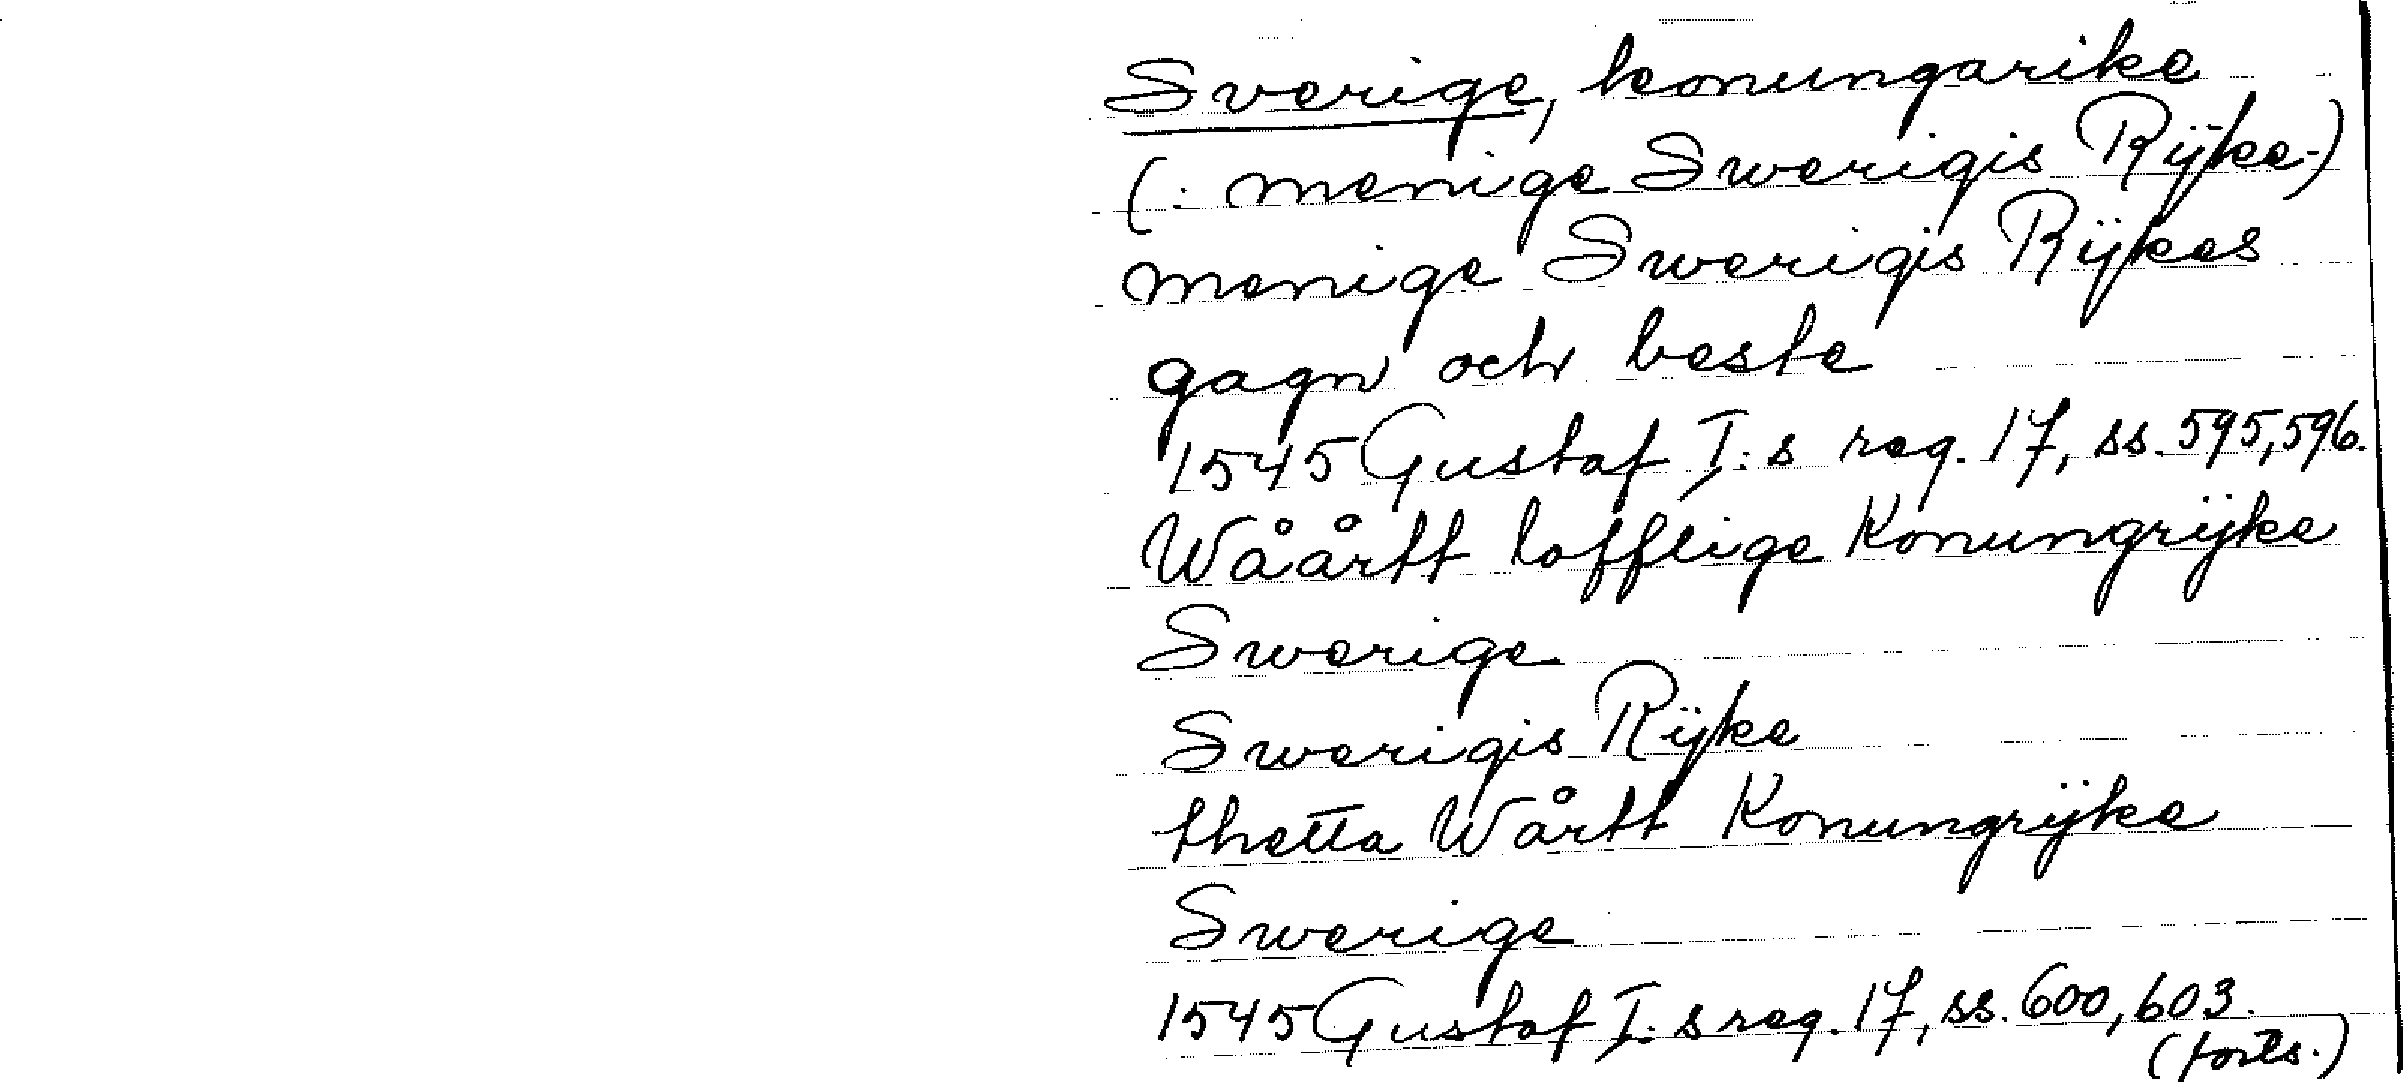 Sverige, konungarike
(: menige Swerigis Rijke-)
menige Swerigis Rijkes
gagn och beste
1545 Gustaf I:s reg. 17, ss. 595, 596.
Wåårtt lofflige Konungrijke
Swerige
Swerigis Rijke
thetta Wårtt Konungrijke
Swerige
1545 Gustaf I:s reg. 17, ss. 600, 603.
(forts.)